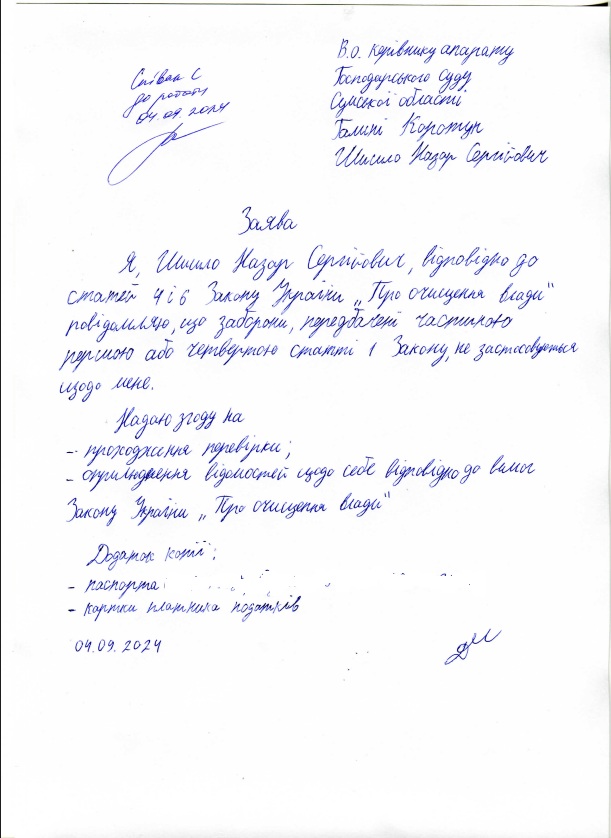 В.о. керівнику апарату
Господарського суду
Сумської області
Галині Коротун
Шишло Назар Сергійович
Співак С
до роботи
04.09.2024
Заява
Я, Шишло Назар Сергійович, відповідно до
статей 4 і 6 Закону України „Про очищення влади"
повідомляю, що заборони, передбачені частиною
першою або четвертою статті 1 Закону, не застосовуються
щодо мене.
Надаю згоду на
- проходження перевірки;
- оприлюднення відомостей щодо себе відповідно до вимог
Закону України „Про очищення влади"
Додаток копії:
- паспорта
- картки платника податків
04.09.2024